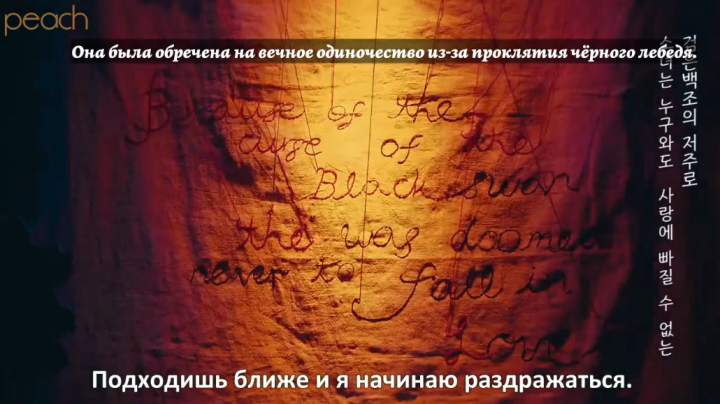 peach
Она была обречена на вечное одиночество из-за проклятия чёрного лебедя.
검은백조의 저주로
소녀는 누구와도 사랑에 빠질 수 없는
Because of the
ause of the
Black swan
the was doomed
never to fall in
Love
Подходишь ближе и я начинаю раздражаться.